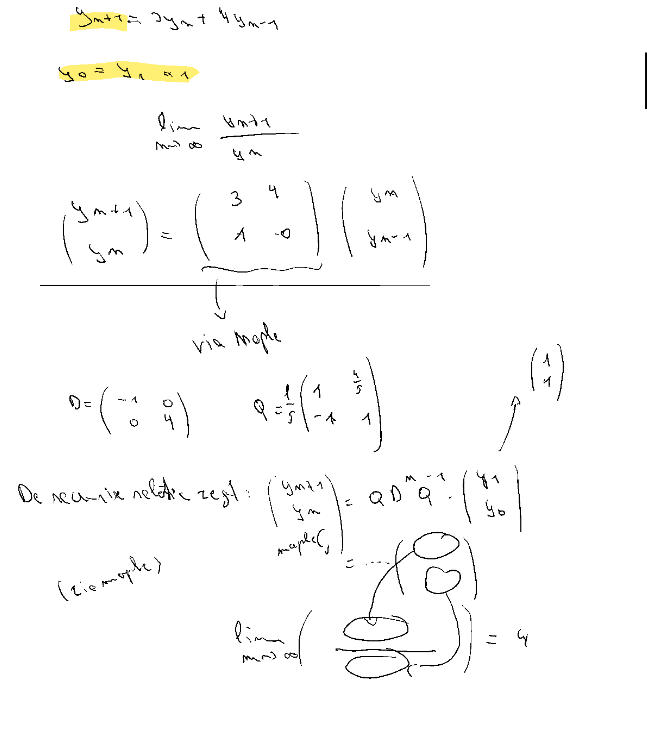 yn+1 = 3yn + 4yn-1
y0 = y1 = 1
lim n→∞ yn+1 / yn
(yn+1 yn) = (3 4 1 0) (yn yn-1)
via Maple
D = (-1 0 0 4) Q = 1/5 (1 4/5 -1 1) (1 1)
De recursie relatie zegt: (yn+1 yn) = Q D^n Q^-1 · (y1 y0)
maple(,
(zie maple) = ..... ( )
lim n→∞ ( ) = 4